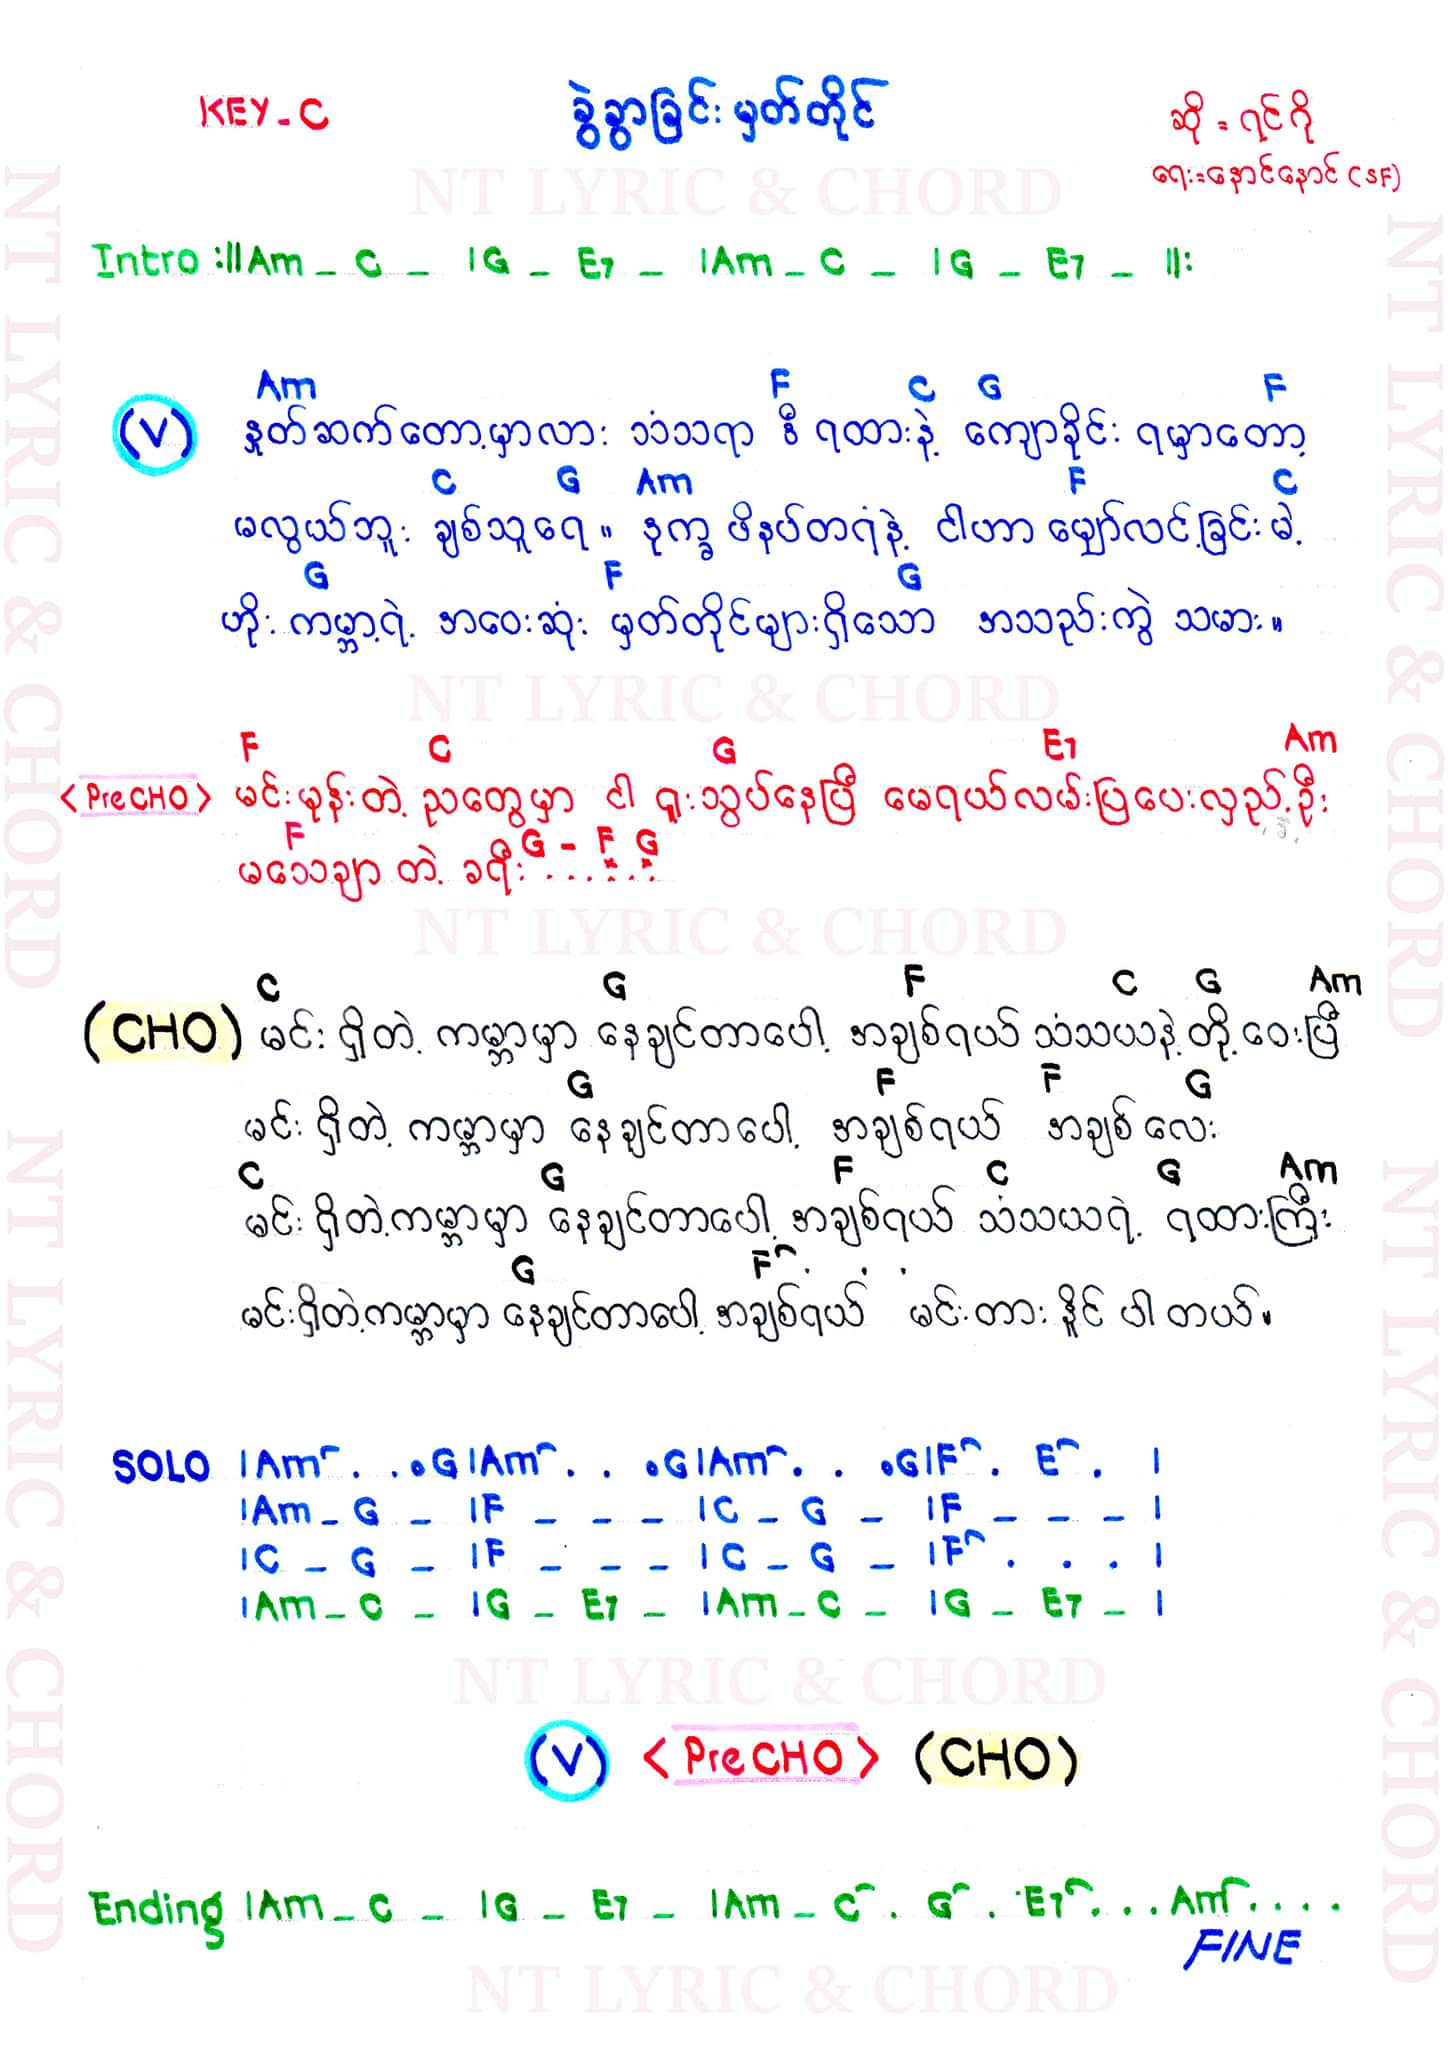 KEY - C
ခွဲခွာခြင်း မှတ်တိုင်
ဆို = ရင်ဂို
ရေး = နောင်နောင် (SF)
NT LYRIC & CHORD
Intro :||Am _ C _ |G _ E7 _ |Am _ C _ |G _ E7 _ ||:
Am F C G F
(V) နှုတ်ဆက်တော့မှာလား သံသရာ ဒီ ရထားနဲ့ ကျောခိုင်း ရမှာတော့
C G Am F C
မလွယ်ဘူး ချစ်သူရေ။ ဒုက္ခ ဖိနပ်တရံနဲ့ ငါဟာ မျှော်လင့်ခြင်းမဲ့
G F G
ဟိုး ကမ္ဘာ့ရဲ့ အဝေးဆုံး မှတ်တိုင်များရှိသော အသည်းကွဲ သမား။
NT LYRIC & CHORD
F C G E7 Am
<PreCHO> မင်းမုန်းတဲ့ ညတွေမှာ ငါ ရူးသွပ်နေပြီ မေရယ်လမ်းပြပေးလှည့်ဦး
F G - F G
မသေချာ တဲ့ ခရီး . . . . . .
NT LYRIC & CHORD
C G F C G Am
(CHO) မင်း ရှိတဲ့ ကမ္ဘာမှာ နေချင်တာပေါ့ အချစ်ရယ် သံသယနဲ့ တို့ ဝေးပြီ
G F F G
မင်း ရှိတဲ့ ကမ္ဘာမှာ နေချင်တာပေါ့ အချစ်ရယ် အချစ် လေး
C G F C G Am
မင်း ရှိတဲ့ကမ္ဘာမှာ နေချင်တာပေါ့ အချစ်ရယ် သံသယရဲ့ ရထားကြီး
G F . . .
မင်းရှိတဲ့ကမ္ဘာမှာ နေချင်တာပေါ့ အချစ်ရယ် မင်းတားနိုင် ပါ တယ်။
SOLO |Am . . . G|Am . . . G|Am . . . G|F . E . |
|Am _ G _ |F _ _ _ |C _ G _ |F _ _ _ |
|C _ G _ |F _ _ _ |C _ G _ |F . . . |
|Am _ C _ |G _ E7 _ |Am _ C _ |G _ E7 _ |
NT LYRIC & CHORD
(V) <PreCHO> (CHO)
Ending |Am _ C _ |G _ E7 _ |Am _ C . G . E7 . . . Am . . . .
FINE
NT LYRIC & CHORD
NT LYRIC & CHORD
NT LYRIC & CHORD
NT LYRIC & CHORD
NT LYRIC & CHORD